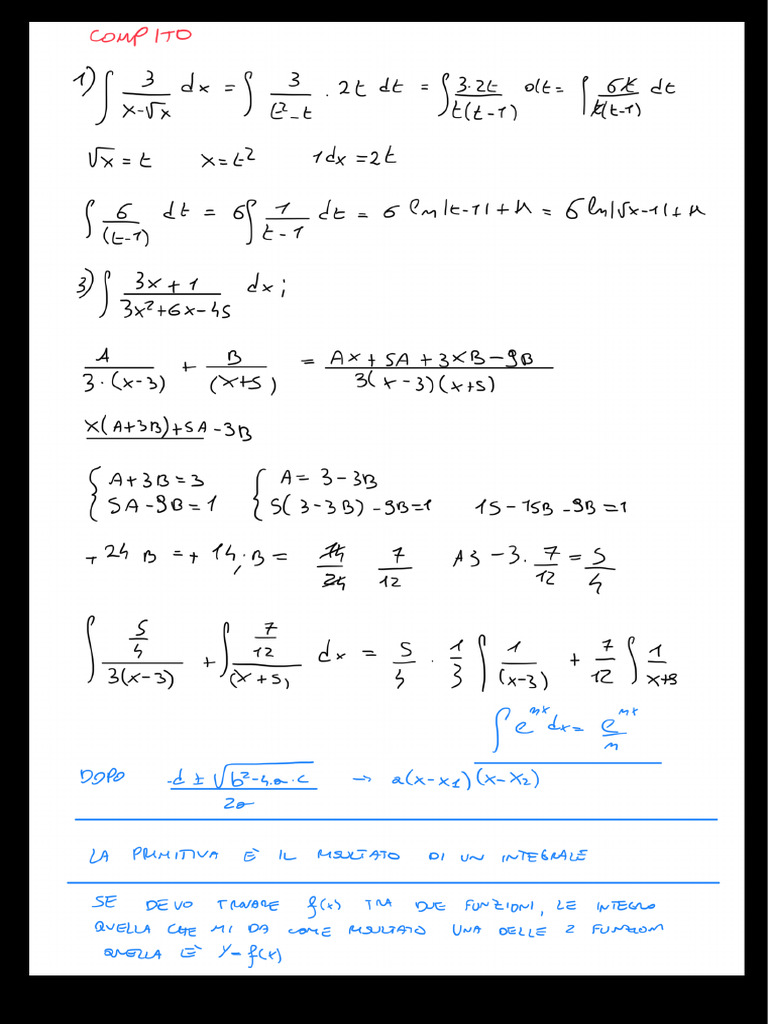 COMPITO
1) ∫ 3/(x-√x) dx = ∫ 3/(t²-t) · 2t dt = ∫ 3·2t/(t(t-1)) dt = ∫ 6t/(t(t-1)) dt
√x = t x = t² 1dx = 2t
∫ 6/(t-1) dt = 6∫ 1/(t-1) dt = 6 ln|t-1| + K = 6 ln|√x-1| + K
3) ∫ (3x+1)/(3x²+6x-45) dx;
A/(3·(x-3)) + B/(x+5) = (Ax+5A+3xB-9B)/(3(x-3)(x+5))
x(A+3B)+5A-3B
{ A+3B=3 { A= 3-3B
{ 5A-9B=1 { 5(3-3B)-9B=1 15-15B-9B=1
+24B=+14; B= 14/24 7/12 A3-3·7/12=5/4
∫ (5/4)/(3(x-3)) + ∫ (7/12)/(x+5) dx = 5/4 · 1/3 ∫ 1/(x-3) + 7/12 ∫ 1/(x+3)
∫ e^mx dx = e^mx/m
DOPO (-d ± √(b²-4·a·c))/2a → a(x-x1)(x-x2)
LA PRIMITIVA È IL RISULTATO DI UN INTEGRALE
SE DEVO TROVARE f(x) TRA DUE FUNZIONI, LE INTEGRO
QUELLA CHE MI DA COME RISULTATO UNA DELLE 2 FUNZIONI
QUELLA È Y=f(x)